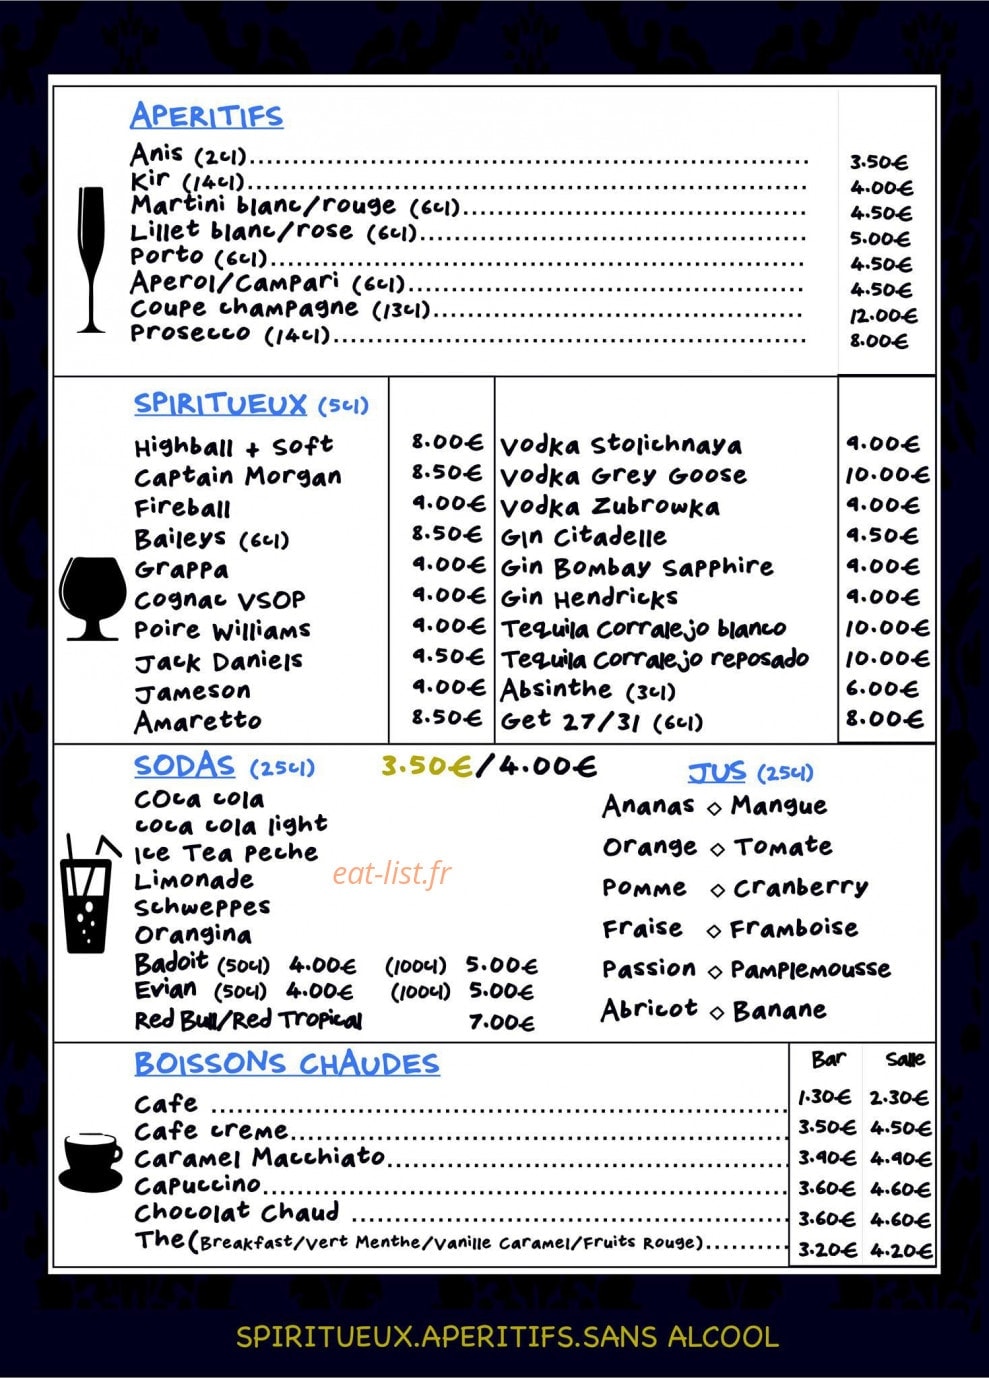 APERITIFS
Anis (2cl)........ 3.50€
Kir (14cl)........ 4.00€
Martini blanc/rouge (6cl)........ 4.50€
Lillet blanc/rose (6cl)........ 5.00€
Porto (6cl)........ 4.50€
Aperol/Campari (6cl)........ 4.50€
Coupe champagne (13cl)........ 12.00€
Prosecco (14cl)........ 8.00€
SPIRITUEUX (5cl)
Highball + Soft 8.00€ Vodka Stolichnaya 9.00€
Captain Morgan 8.50€ Vodka Grey Goose 10.00€
Fireball 9.00€ Vodka Zubrowka 9.00€
Baileys (6cl) 8.50€ Gin Citadelle 9.50€
Grappa 9.00€ Gin Bombay Sapphire 9.00€
Cognac VSOP 9.00€ Gin Hendricks 9.00€
Poire Williams 9.00€ Tequila Corralejo blanco 10.00€
Jack Daniels 9.50€ Tequila Corralejo reposado 10.00€
Jameson 9.00€ Absinthe (3cl) 6.00€
Amaretto 8.50€ Get 27/31 (6cl) 8.00€
SODAS (25cl) 3.50€/4.00€
COca cola
coca cola light
Ice Tea Peche
Limonade
Schweppes
Orangina
Badoit (50cl) 4.00€ (100cl) 5.00€
Evian (50cl) 4.00€ (100cl) 5.00€
Red Bull/Red Tropical 7.00€
JUS (25cl)
Ananas ◇ Mangue
Orange ◇ Tomate
Pomme ◇ Cranberry
Fraise ◇ Framboise
Passion ◇ Pamplemousse
Abricot ◇ Banane
eat-list.fr
BOISSONS CHAUDES Bar Salle
Cafe ........ 1.30€ 2.30€
Cafe creme........ 3.50€ 4.50€
Caramel Macchiato........ 3.90€ 4.90€
Capuccino........ 3.60€ 4.60€
Chocolat Chaud ........ 3.60€ 4.60€
The(Breakfast/Vert Menthe/Vanille Caramel/Fruits Rouge)........ 3.20€ 4.20€
SPIRITUEUX.APERITIFS.SANS ALCOOL